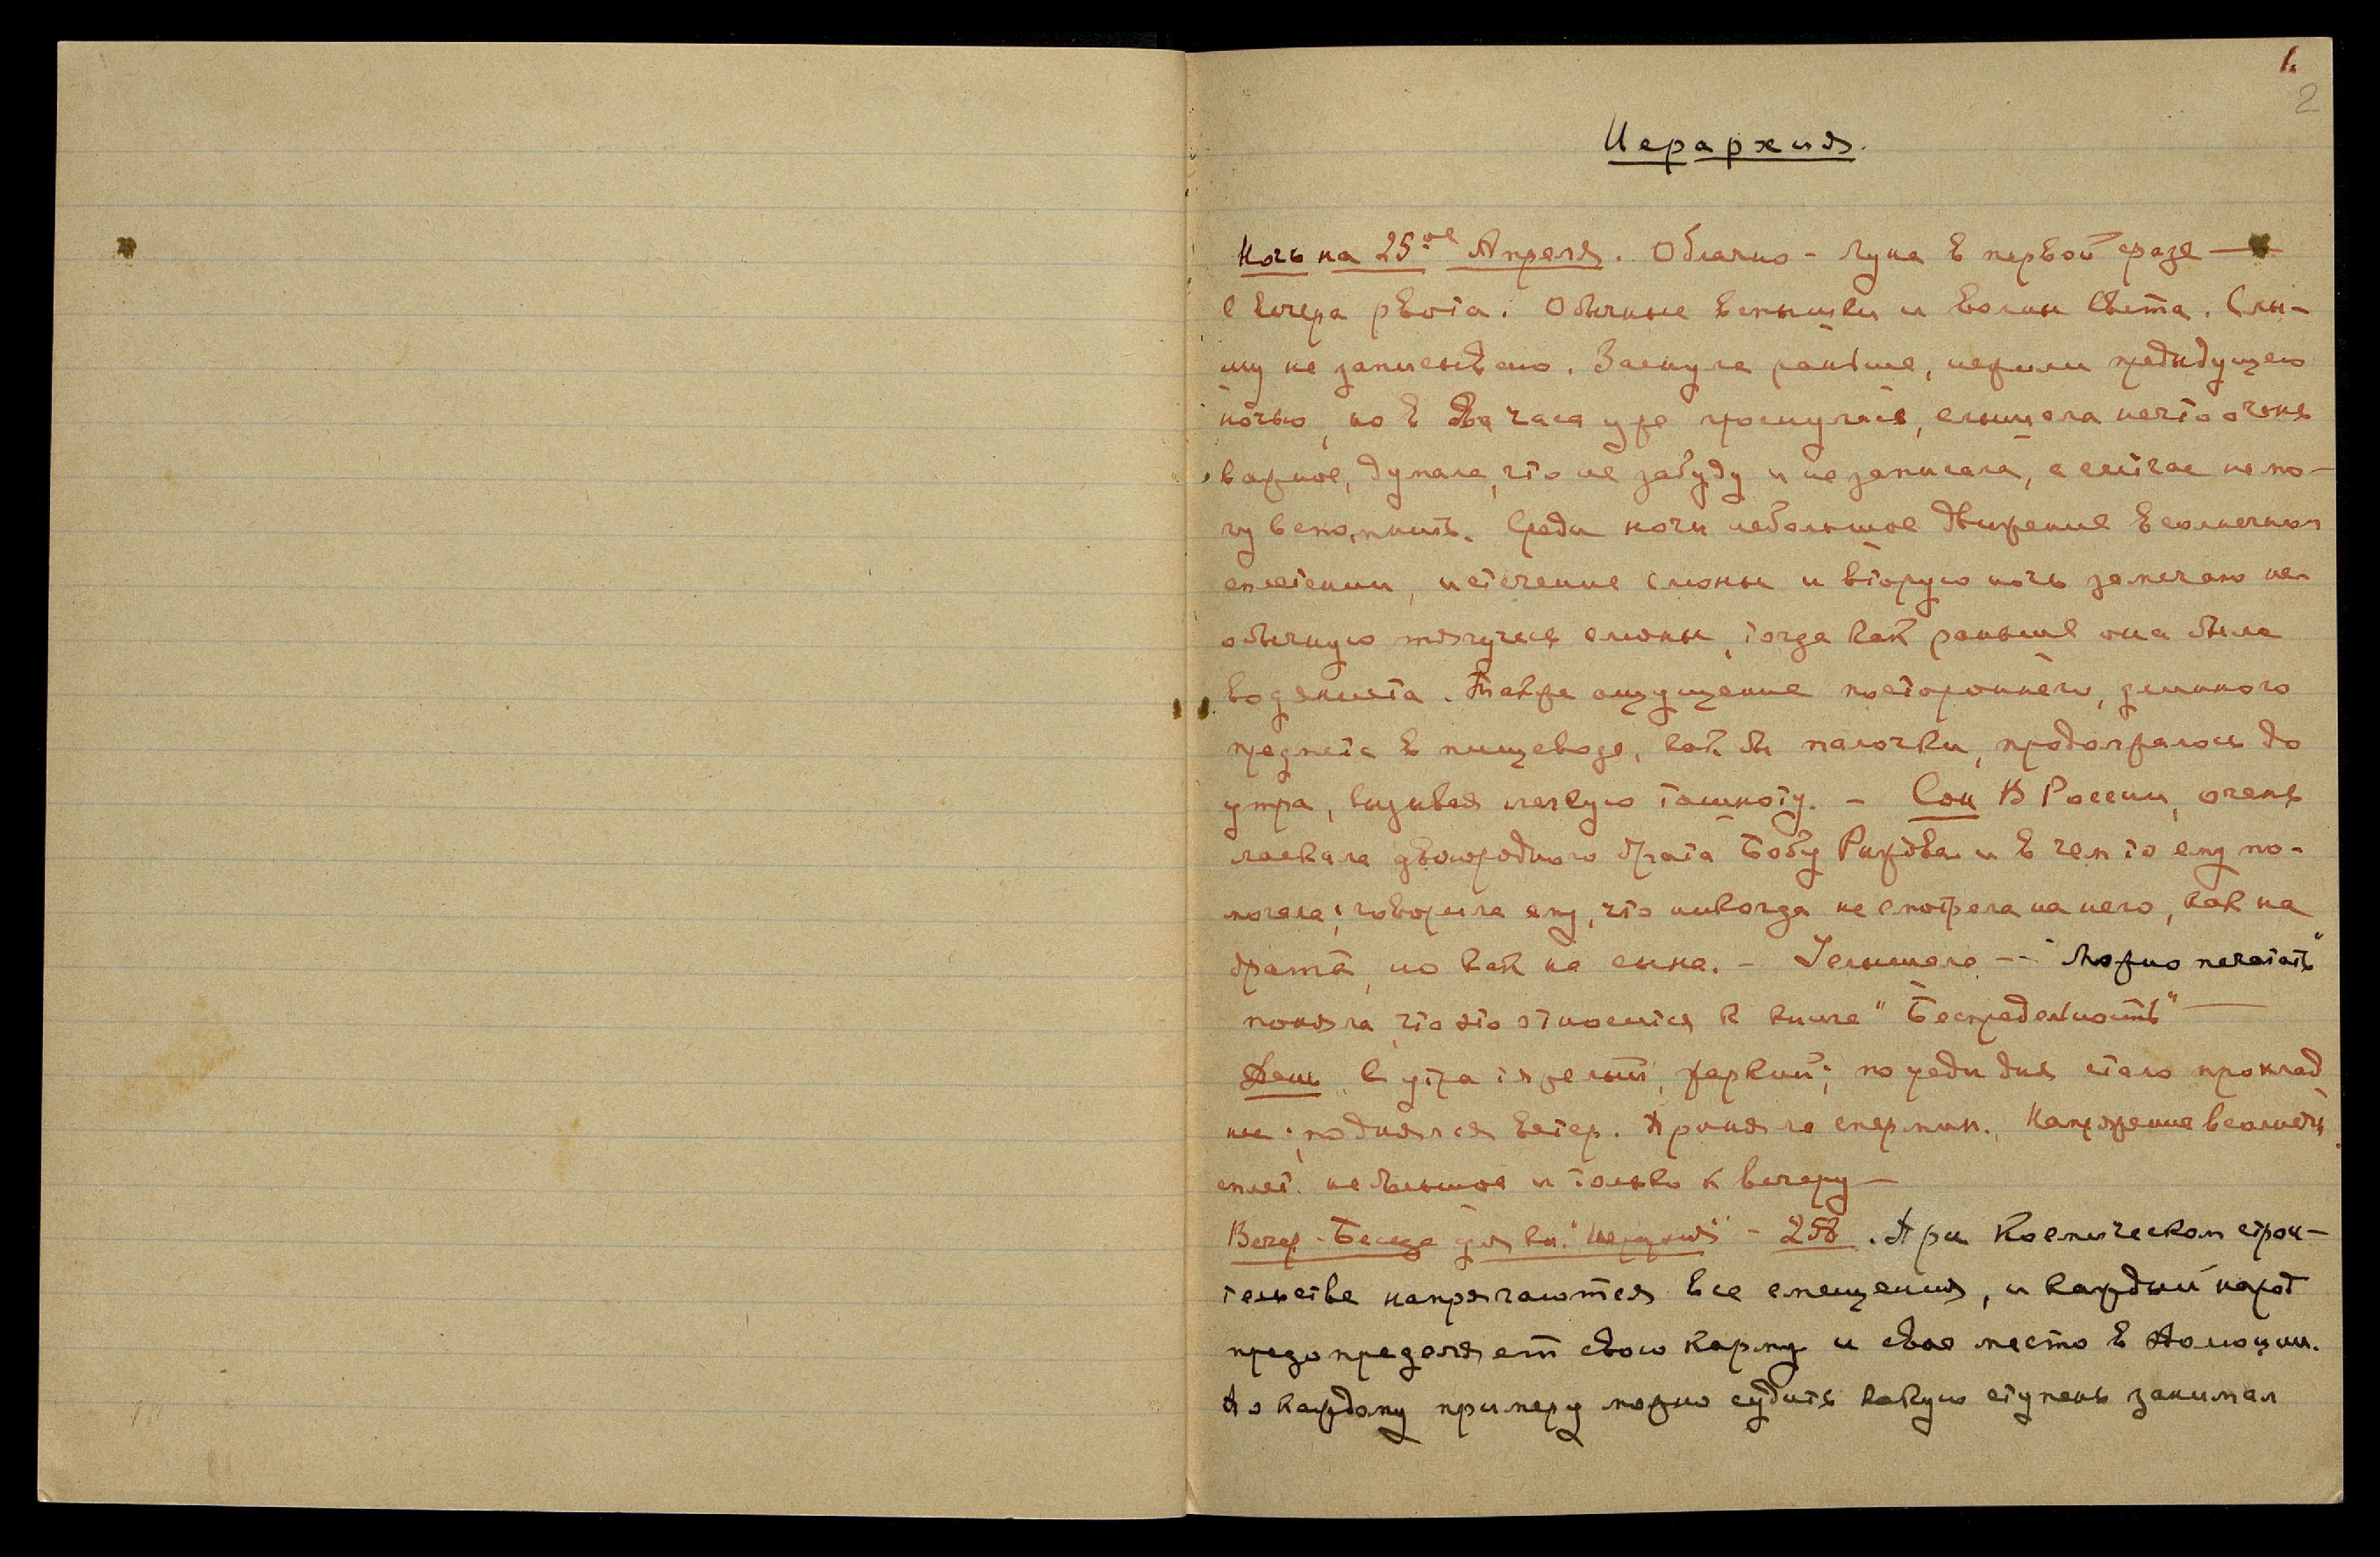 1.
2
Иерархия.
Ночь на 25ое Апреля. Облачно – Луна в первой фазе —
С вечера рвота. Обычные вспышки и волны света. Слы-
шу не записываю. Заснула раньше, нежели предыдущею
ночью, но в два часа уже проснулась, слышала нечто очень
важное, думала, что не забуду и не записала, а сейчас не мо-
гу вспомнить. Среди ночи небольшое движение в солнечном
сплетении, истечение слюны и вторую ночь замечаю не
обычную тягучесть слюны, тогда как раньше она была
водяниста. Также ощущение постороннего, длинного
предмета в пищеводе, как бы палочки, продолжалось до
утра, вызывая легкую тошноту. – Сон В России, очень
ласкала двоюродного брата Бобу Рыжова и в чем то ему по-
могала; говорила ему, что никогда не смотрела на него, как на
брата, но как на сына. – Услышала – "Можно печатать"
поняла, что это относится к книге "Беспредельность" —
День С утра тяжелый, жаркий; посреди дня стало прохлад
нее; поднялся ветер. Приняла спермин. Напряжение в солнечн.
сплет. небольшое и только к вечеру —
Вечер – Беседа для кн. "Иерархия" – 258. При Космическом строи-
тельстве напрягаются все смещения, и каждый народ
предопределяет свою карму и свое место в эволюции.
По каждому примеру можно судить какую ступень занимал